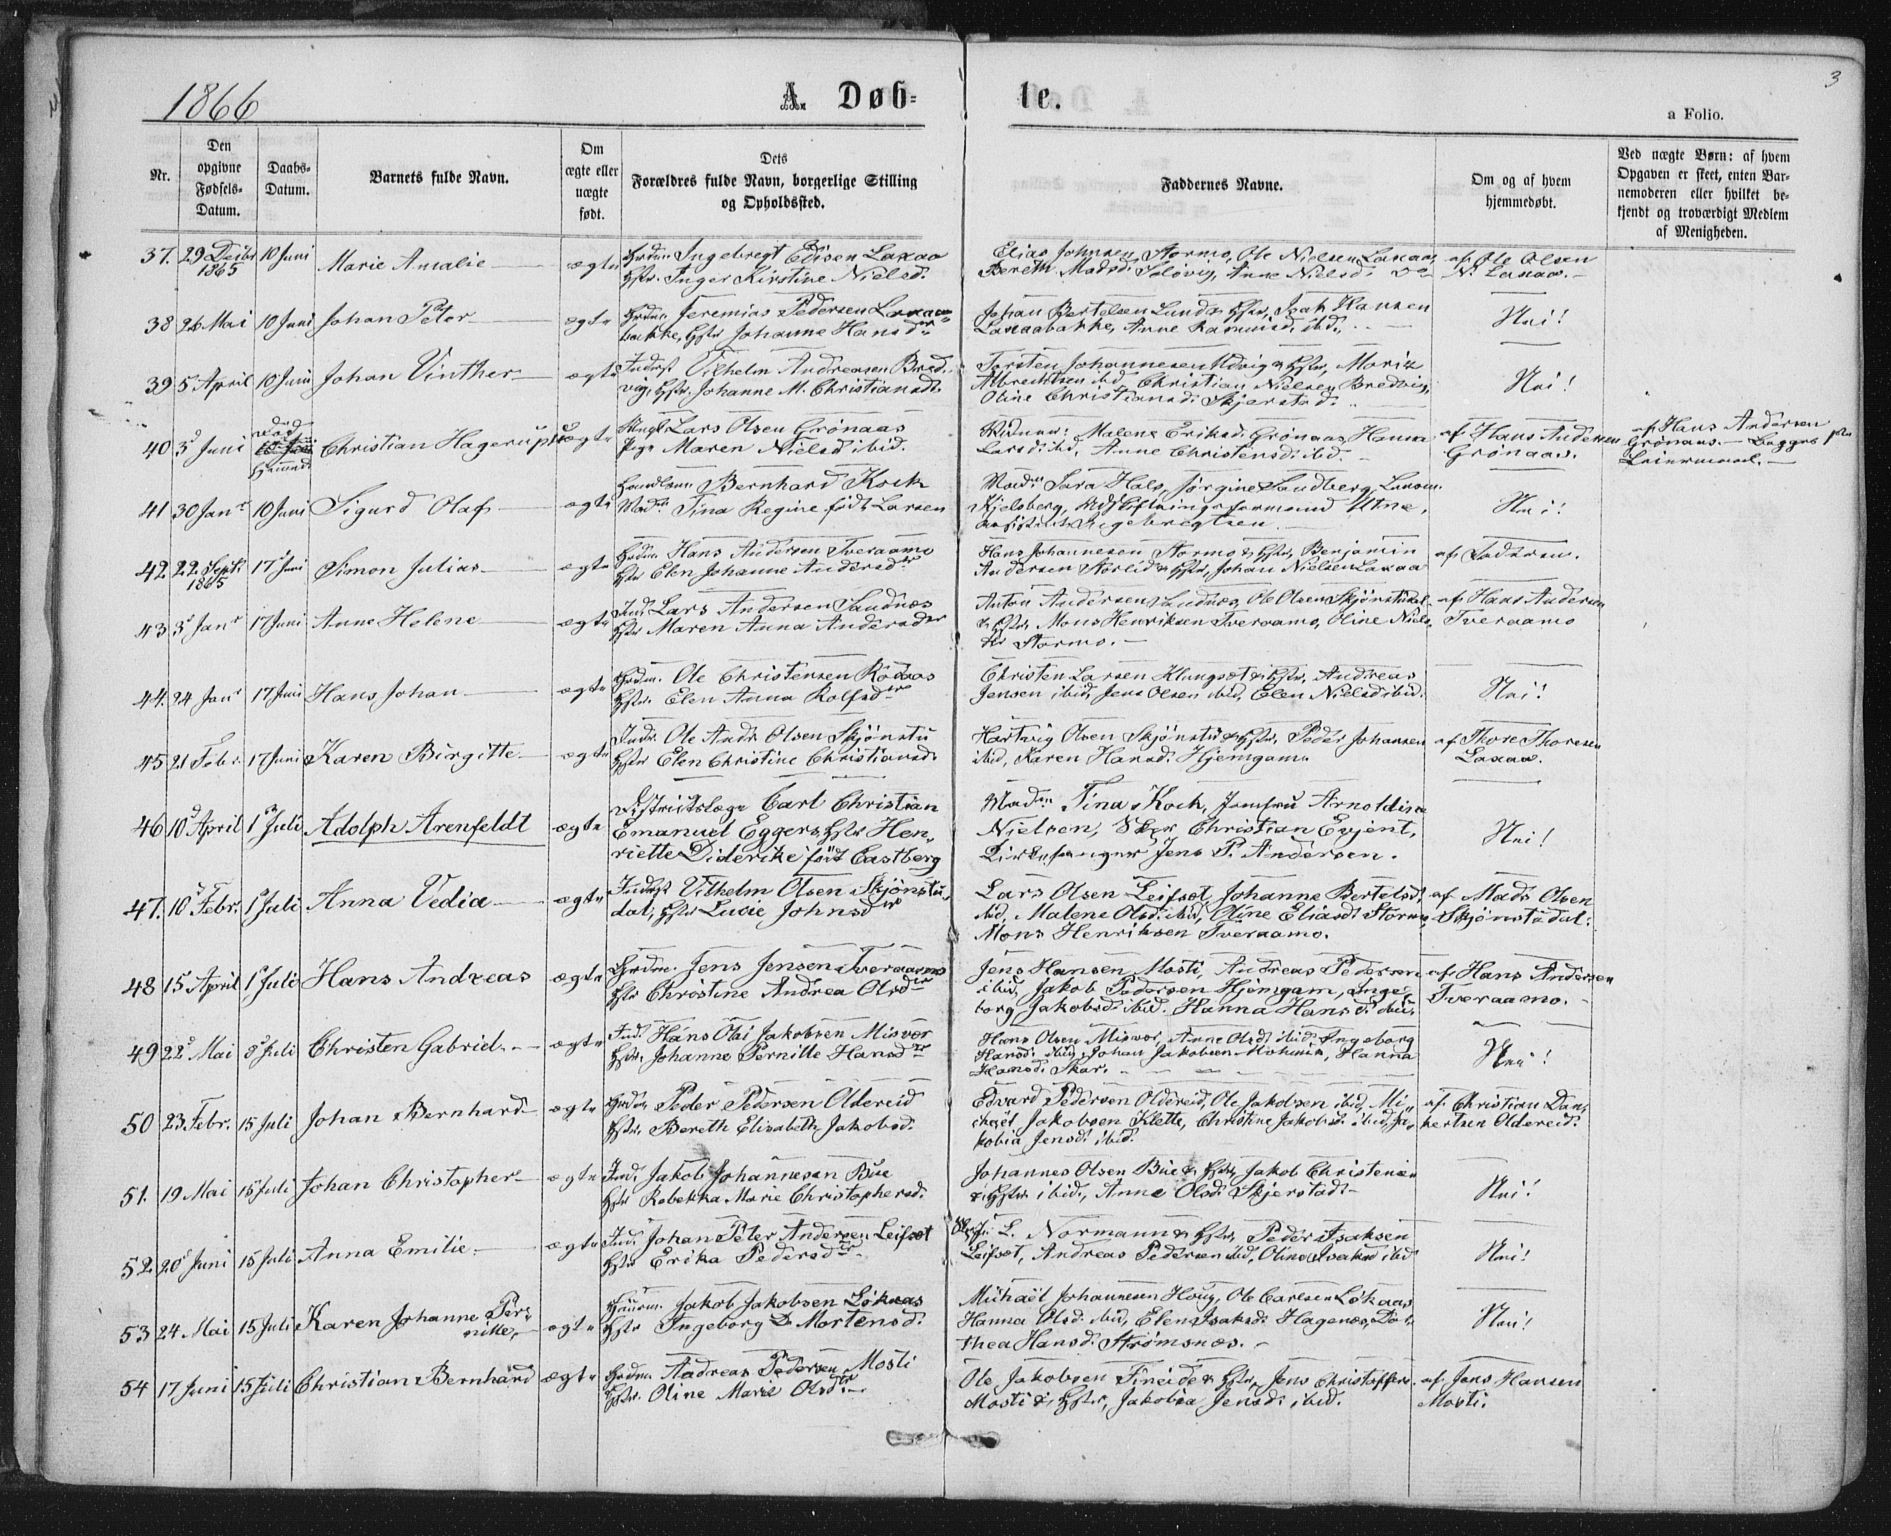 1866
A. Døb-
te.
3
a Folio.
Nr.
Den opgivne Fødsels-Datum.
Daabs-Datum.
Barnets fulde Navn.
Om ægte eller uægte født.
Dets Forældres fulde Navn, borgerlige Stilling og Opholdssted.
Faddernes Navne.
Om og af hvem hjemmedøbt.
Ved uægte Børn: af hvem Opgaven er skeet, enten Barnemoderen eller hvilket bekjendt og troværdigt Medlem af Menigheden.
37. 29 Decbr 1865 10 Juni Marie Amalie ægte
Ingebregt Edisen Laxaa
Inger Kirstine Nielsd.
Elias Johnsen Stormo, Ole Nielsen Laxaa,
Bereth Madsd. Soløvig, Anne Nielsd. do
af Ole Olsen
N. Laxaa.
38 26 Mai 10 Juni Johan Peter ægte
Jeremias Pedersen Laxaa-
bakke, Hstr Johanne Hansdtr
Johan Bertelsen Lund & Hstr, Isak Hansen
Laxaabakke, Anne Rasmusd. ibid.
Nei!
39 5 April 10 Juni Johan Vinther ægte
Inderst Vilhelm Andreasen Bred-
vig, Hstr Johanne M. Christiansdtr
Torsten Johannesen Udvig & Hstr, Moritz
Albrechtsen ibid, Christian Nielsen Bredvig,
Oline Christiansd. Skjerstad.
Nei!
40 3 Juni Christian Hagerup uægte
Lars Olsen Grønaas
Pige Maren Nielsd ibid.
Malene Eriksd. Grønaas, Hanna
Larsd ibid, Anne Christensd. ibid.
af Hans Andersen
Grønaas.
af Hans Andersen
Grønaas. - Begges
Leiermaal.
41 30 Janr 10 Juni Sigurd Olaf ægte
Bernhard Kock
Mad. Tina Regine født Larsen
Mad. Sara Hals, Jørgine Sandberg, Lassen
Kjelsberg, Udskiftningsformand Utne,
Assistent Ingebregtsen
Nei!
42 22 Sept. 1865 17 Juni Simon Julias ægte
Hans Andersen Tveraamo
Hstr Elen Johanne Andersdtr
Hans Johannesen Stormo & Hstr, Benjamin
Andersen Storlid & Hstr, Johan Nielsen Laxaa
af
43 3 Janr 17 Juni Anne Helene ægte
Ind. Lars Andersen Sandnæs
Hstr Maren Anna Andersdtr
Anton Andersen Sandnæs, Ole Olsen Skjønstudal
& Hstr, Mons Henriksen Tveraamo, Oline Niels
dtr Stormo.
af Hans Andersen
Tveraamo
44. 24 Janr 17 Juni Hans Johan ægte
Ole Christensen Rødaas
Hstr. Elen Anna Rolfsdtr
Christen Larsen Klungset & Hstr, Andreas
Jensen ibid, Jens Olsen ibid, Elen Nielsd ibid.
Nei!
45 21 Febr. 17 Juni Karen Birgitte ægte
Indr. Ole Andr. Olsen Skjønstu
Hstr Elen Christine Christiansd.
Hartvig Olsen Skjønstu & Hstr, Peder Johansen
ibid, Karen Hansd. Hjemgam
af Thore Thoresen
Laxaa.
46 10 April 1 Juli Adolph Arenfeldt ægte
Districtslæge Carl Christian
Emanuel Eggers, Hstr Hen-
riette Diderike født Castberg
Mad. Tina Kock, Jomfru Arnoldine
Nielsen, Christian Evjent,
Kirkesanger Jens P. Andersen.
Nei!
47. 10 Febr. 1 Juli Anna Vedia ægte
Inderst Vilhelm Olsen Skjønstu-
dal, Hstr Lucie Johnsdtr
Lars Olsen Leifset, Johanne Bertelsd.
ibid, Malene Olsd. ibid, Oline Eliasd. Stormo,
Mons Henriksen Tveraamo.
af Mads Olsen
Skjønstudal.
48 15 April 1 Juli Hans Andreas ægte
Jens Jensen Tveraamo
Hstr Christine Andrea Olsdtr
Jens Hansen Mosti, Andreas Pedersen
ibid, Jakob Pedersen Hjemgam, Inge-
borg Jakobsd. ibid. Hanna Hansd. ibid.
af Hans Andersen
Tveraamo.
49 22 Mai 8 Juli Christen Gabriel ægte
Ind. Hans Olai Jakobsen Misvær
Hstr. Johanne Pernille Hansdtr
Hans Olsen Misvær, Anne Olsd. ibid. Ingeborg
Hansd. ibid, Johan Jakobsen, Hanna
Hansd. Skar.
Nei!
50 23 Febr. 15 Juli Johan Bernhard ægte
Peder Pedersen Oldereid
Hstr. Bereth Elisabeth Jakobsd.
Edvard Pedersen Oldereid, Ole Jakobsen ibid, Mi-
chael Jakobsen Klette, Christine Jakobsd. ibid, Ja-
kobia Jensd. ibid.
af Christian Dan-
kertsen Oldereid.
51. 19 Mai 15 Juli Johan Christopher ægte
Ind. Jakob Johannesen Bue
Hstr Rebekka Marie Christophersd.
Johannes Olsen Bue & Hstr, Jakob Christensen
& Hstr ibid., Anne Olsd. Skjerstad.
Nei!
52 20 Juni 15 Juli Anna Emilie ægte
Ind. Johan Peter Andersen Leifset
Hstr Erika Pedersdtr
L. Normann & Hstr, Peder Isaksen
Leifset, Andreas Pedersen ibid, Oline Isaksd ibid
Nei!
53 24 Mai 15 Juli Karen Johanne Per-
nille ægte
Jakob Jakobsen Løkaas
Hstr Ingeborg D. Mortensd.
Michael Johannesen Houg, Ole Carlsen Løkaas
Hanna Olsd. ibid, Elen Isaksd. Hagenæs, Do-
thea Hansd. Strømsnæs.
Nei!
54 17 Juni 15 Juli Christian Bernhard ægte
Andreas Pedersen Mosti
Hstr. Oline Marie Olsdtr
Ole Jakobsen Fineide & Hstr, Jens Christoffers.
Mosti & Hstr, Jakobia Jensd. ibid.
af Jens Hansen
Mosti.